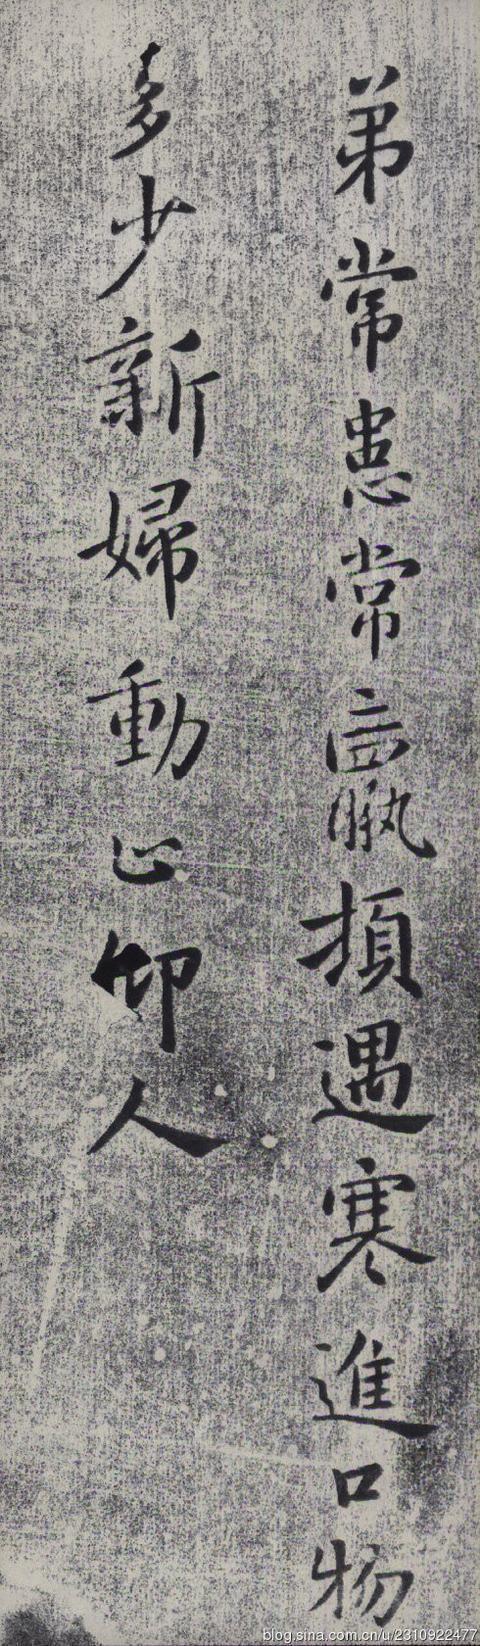 弟常患常啚孰損遇寒進口物
多少新婦動止仰人
blog.sina.com.cn/u/2310922477